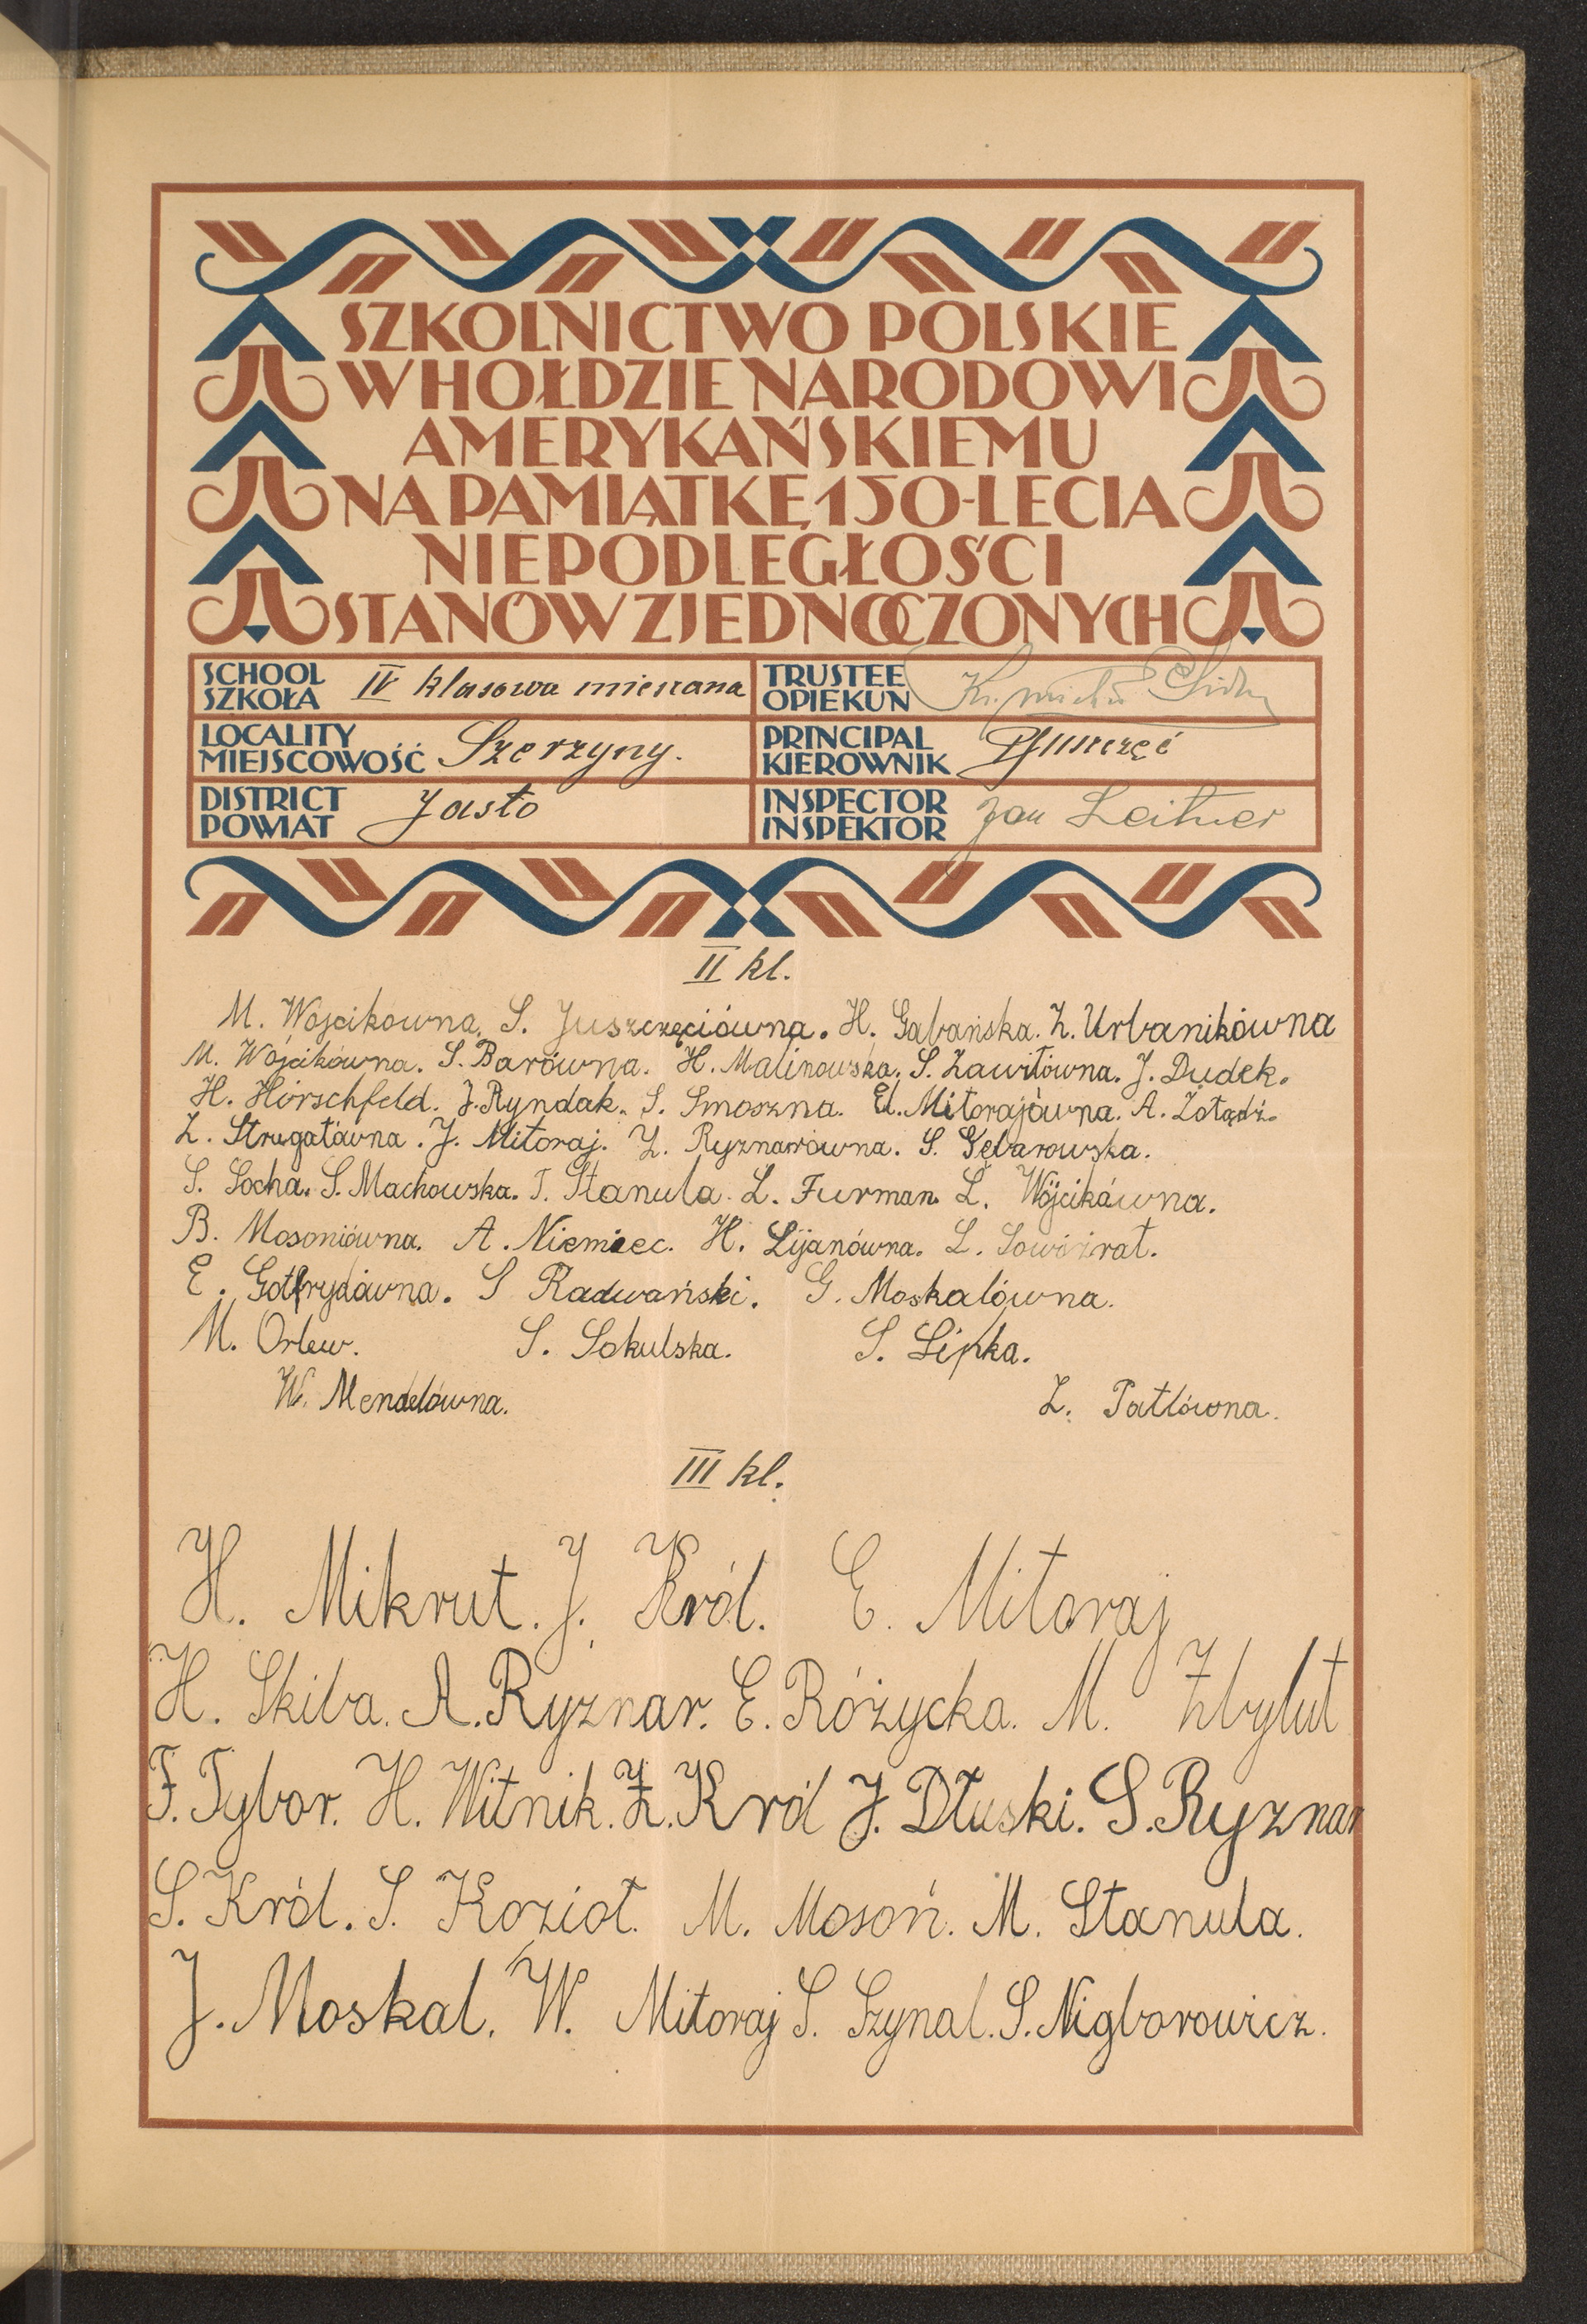 SZKOLNICTWO POLSKIE
W HOŁDZIE NARODOWI
AMERYKAŃSKIEMU
NA PAMIĄTKĘ 150-LECIA
NIEPODLEGŁOŚCI
STANÓW ZJEDNOCZONYCH
SCHOOL
SZKOŁA
IV klasowa mieszana
TRUSTEE
OPIEKUN
LOCALITY
MIEJSCOWOŚĆ
Szerzyny.
PRINCIPAL
KIEROWNIK
DISTRICT
POWIAT
Jasło
INSPECTOR
INSPEKTOR
Jan Leitner
II kl.
M. Wójcikówna. S. Juszczęciówna. H. Gabańska. Z. Urbanikówna
M. Wójcikówna. S. Barówna. H. Malinowska. S. Zawiłówna. J. Dudek.
H. Hirschfeld. J. Ryndak. S. Smoszna. Ed. Mitorajówna. A. Żołądź.
Z. Strugałówna. J. Mitoraj. Z. Ryznarówna. S. Gębarowska.
S. Socha. S. Machowska. T. Stanula. L. Furman. L. Wójcikówna.
B. Mosoniówna. A. Niemiec. H. Lijanówna. L. Sowiźrał.
E. Gotfrydówna. S Radwański. G. Moskalówna.
M. Orlew. S. Sokulska. S. Lipka.
W. Mendelówna. Z. Patlówna.
III kl.
H. Mikrut. J. Król. E. Mitoraj
H. Skiba. A. Ryznar. E. Różycka. M. Zbylut
F. Tybor. H. Witnik. Z. Król J. Dłuski. S. Ryznar
S. Król. S. Kozioł. M. Mosoń. M. Stanula.
J. Moskal. W. Mitoraj S. Szynal. S. Nigborowicz.